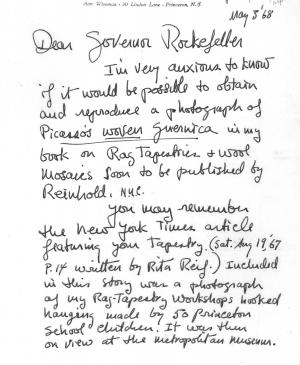 Ann Wiseman - 20 Linden Lane - Princeton, N.J.
May 3 '68
Dear Governor Rockefeller
I'm very anxious to know
if it would be possible to obtain
and reproduce a photograph of
Picasso's woven Guernica in my
book on Rag Tapestries & Wool
Mosaics soon to be published by
Reinhold. N.Y.C.
You may remember
the New York Times article
featuring your Tapestry. (Sat. Aug 19 '67
P. 14 written by Rita Reif.) Included
in this story was a photograph
of my Rag-Tapestry Workshops hooked
hanging made by 50 Princeton
School children. It was then
on view at the Metropolitan Museum.